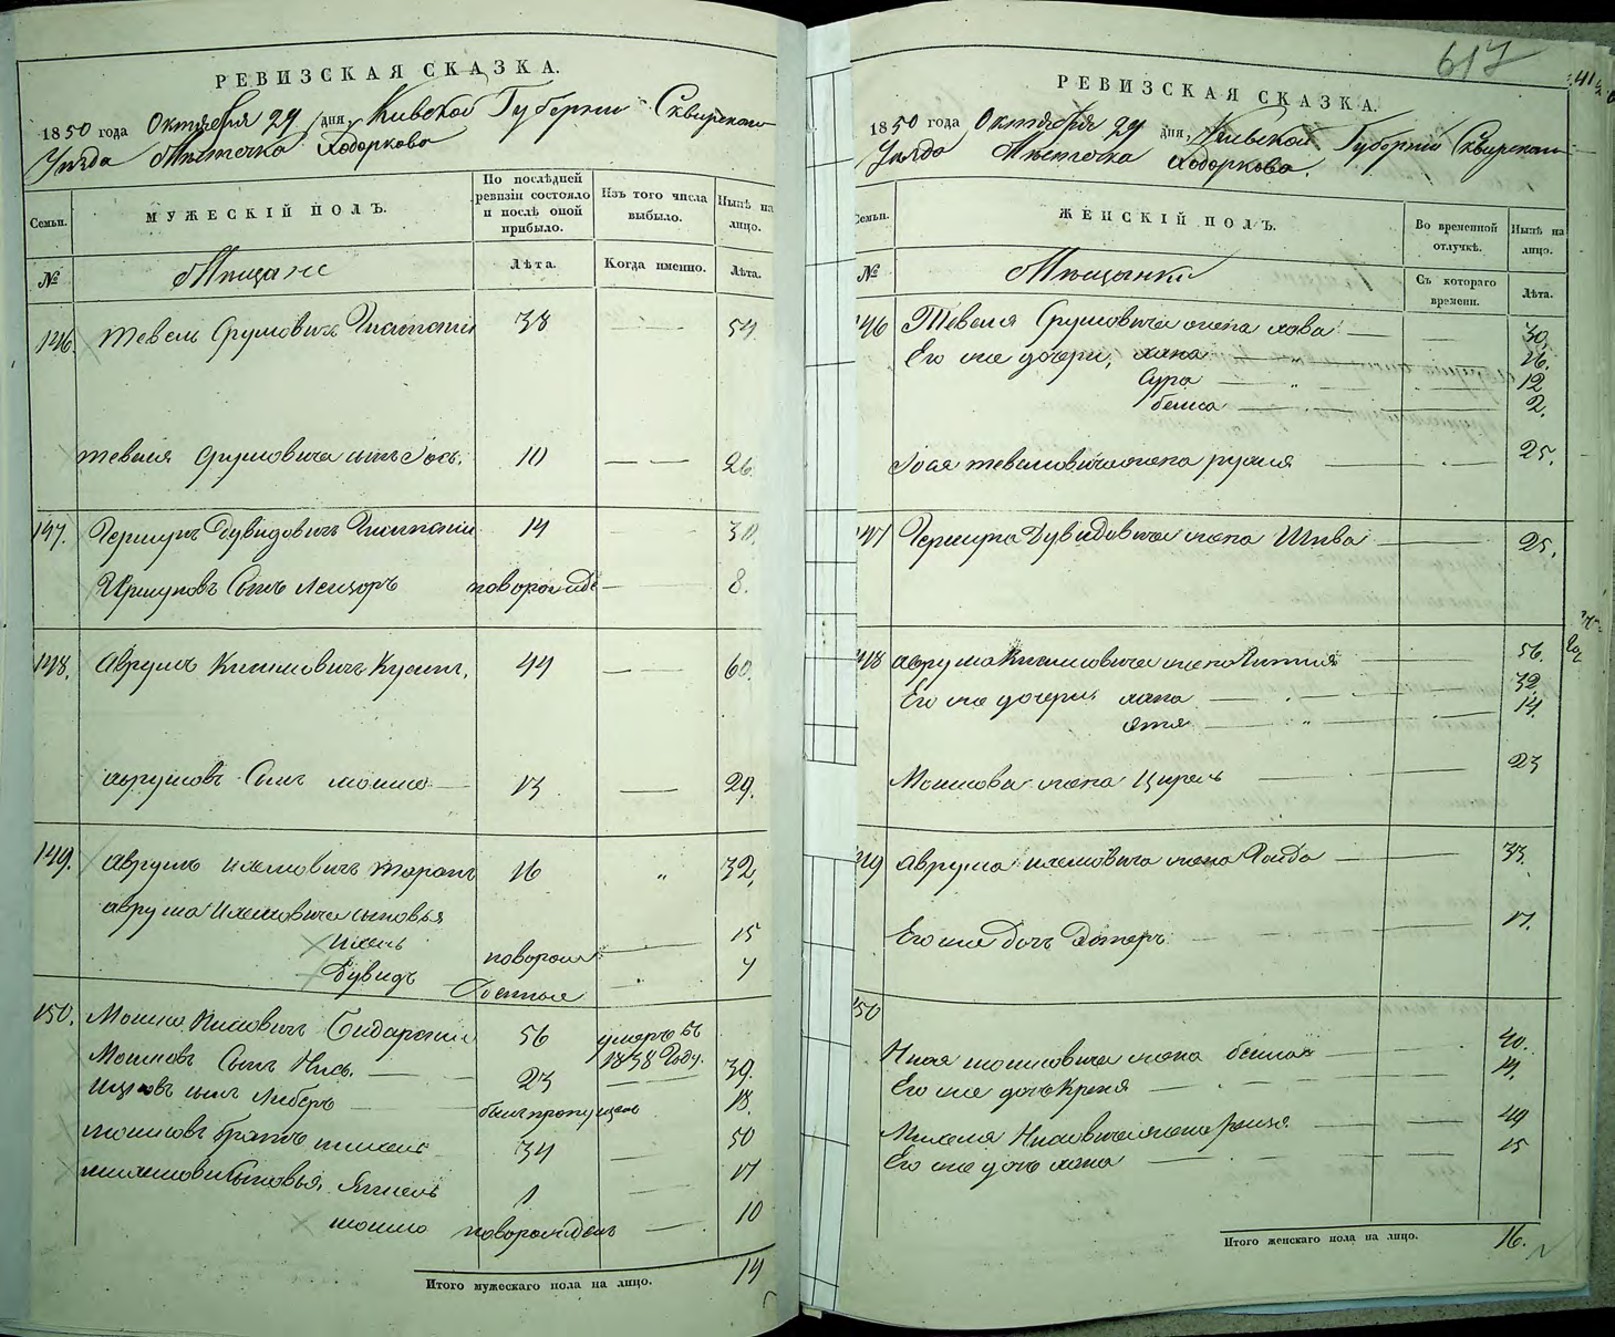 РЕВИЗСКАЯ СКАЗКА.
1850 года Октября 29 дня, Киевской Губернии Сквирскаго
Уѣзда Мѣстечка Ходоркова
Семьи.
МУЖЕСКІЙ ПОЛЪ.
По послѣдней ревизіи состояло и послѣ оной прибыло.
Изъ того числа выбыло.
Нынѣ на лицо.
№
Мѣщане
Лѣта.
Когда именно.
Лѣта.
146. Тевель Срумовичъ 38 — — 54
Тевеля Срумовича сынъ Іось. 10 — — 26.
147. Гершунъ Дувидовичъ 14 — 30.
Гершуновъ Сынъ Лейзоръ новорожде — 8.
148. Аврумъ 44 — — 60.
Аврумовъ Сынъ Мошко 13 — 29.
149. Аврумъ Ихелевичъ Таранъ 16 „ 32.
Аврума Ихелевича сыновья
Ихель новорож — 15
Дувидъ денные — 4
150. Мошко 56 умеръ въ 1838 Году.
Мошковъ Сынъ Нись. — 23 — — 39.
сынъ Либеръ — былъ пропущенъ 18.
Мошковъ братъ Михель 34 — 50
Сыновья, 1 — 17
Мошко новорожденъ — 10
Итого мужескаго пола на лицо. 14
617
РЕВИЗСКАЯ СКАЗКА.
1850 года Октября 29 дня, Киевской Губерніи Сквирскаго
Уѣзда Мѣстечка Ходоркова.
Семьи.
ЖЕНСКІЙ ПОЛЪ.
Во временной отлучкѣ.
Нынѣ на лицо.
№
Мѣщанки
Съ котораго времени.
Лѣта.
146 Тевеля Срумовича жена Хава — — 30.
Его же дочери, Хана — „ — 16.
Сура — „ — 12
Бейла — 2.
Іося Тевелевича жена Рухля — 25.
147 Гершуна Дувидовича жена Шива — 25.
148 Аврума жена — 56.
Его же дочери Хана — 32
Этя — „ — 14.
Мошкова жена Цирель — 23
149 Аврума Ихелевича жена Гольда — 33.
Его же дочь Эстеръ 17.
150
Нися Мошковича жена Бейла — 40.
Его же дочь Крейня — 14.
Михеля жена — 49
Его же дочь Хана — 15
Итого женскаго пола на лицо. 16.